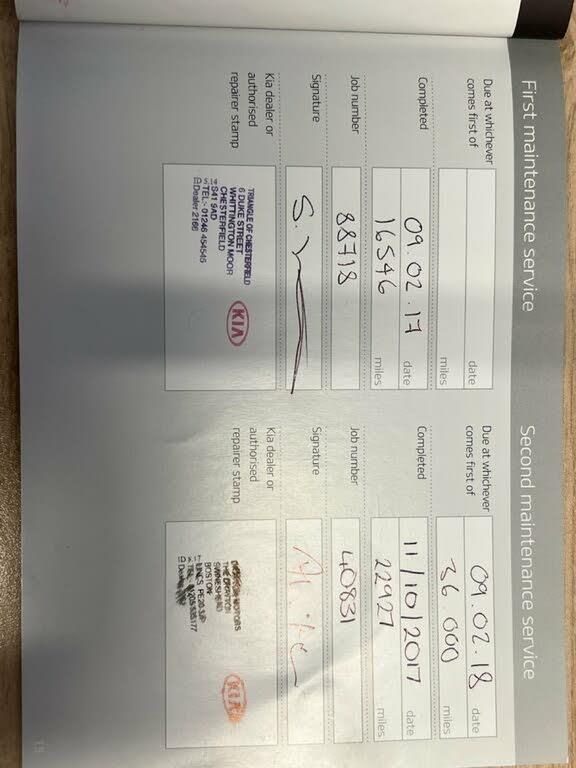 First maintenance service
Due at whichever
comes first of
date
miles
Completed
09.02.17 date
16546 miles
Job number
88718
Signature
Kia dealer or
authorised
repairer stamp
TRIANGLE OF CHESTERFIELD
6 DUKE STREET
WHITTINGTON MOOR
CHESTERFIELD
S41 9AD
TEL:- 01246 454545
Dealer 2166
KIA
Second maintenance service
Due at whichever
comes first of
09.02.18 date
36 000 miles
Completed
11/10/2017 date
22927 miles
Job number
40831
Signature
Kia dealer or
authorised
repairer stamp
MOTORS
SWINESHEAD
BOSTON
LINCS PE20
TEL:
KIA